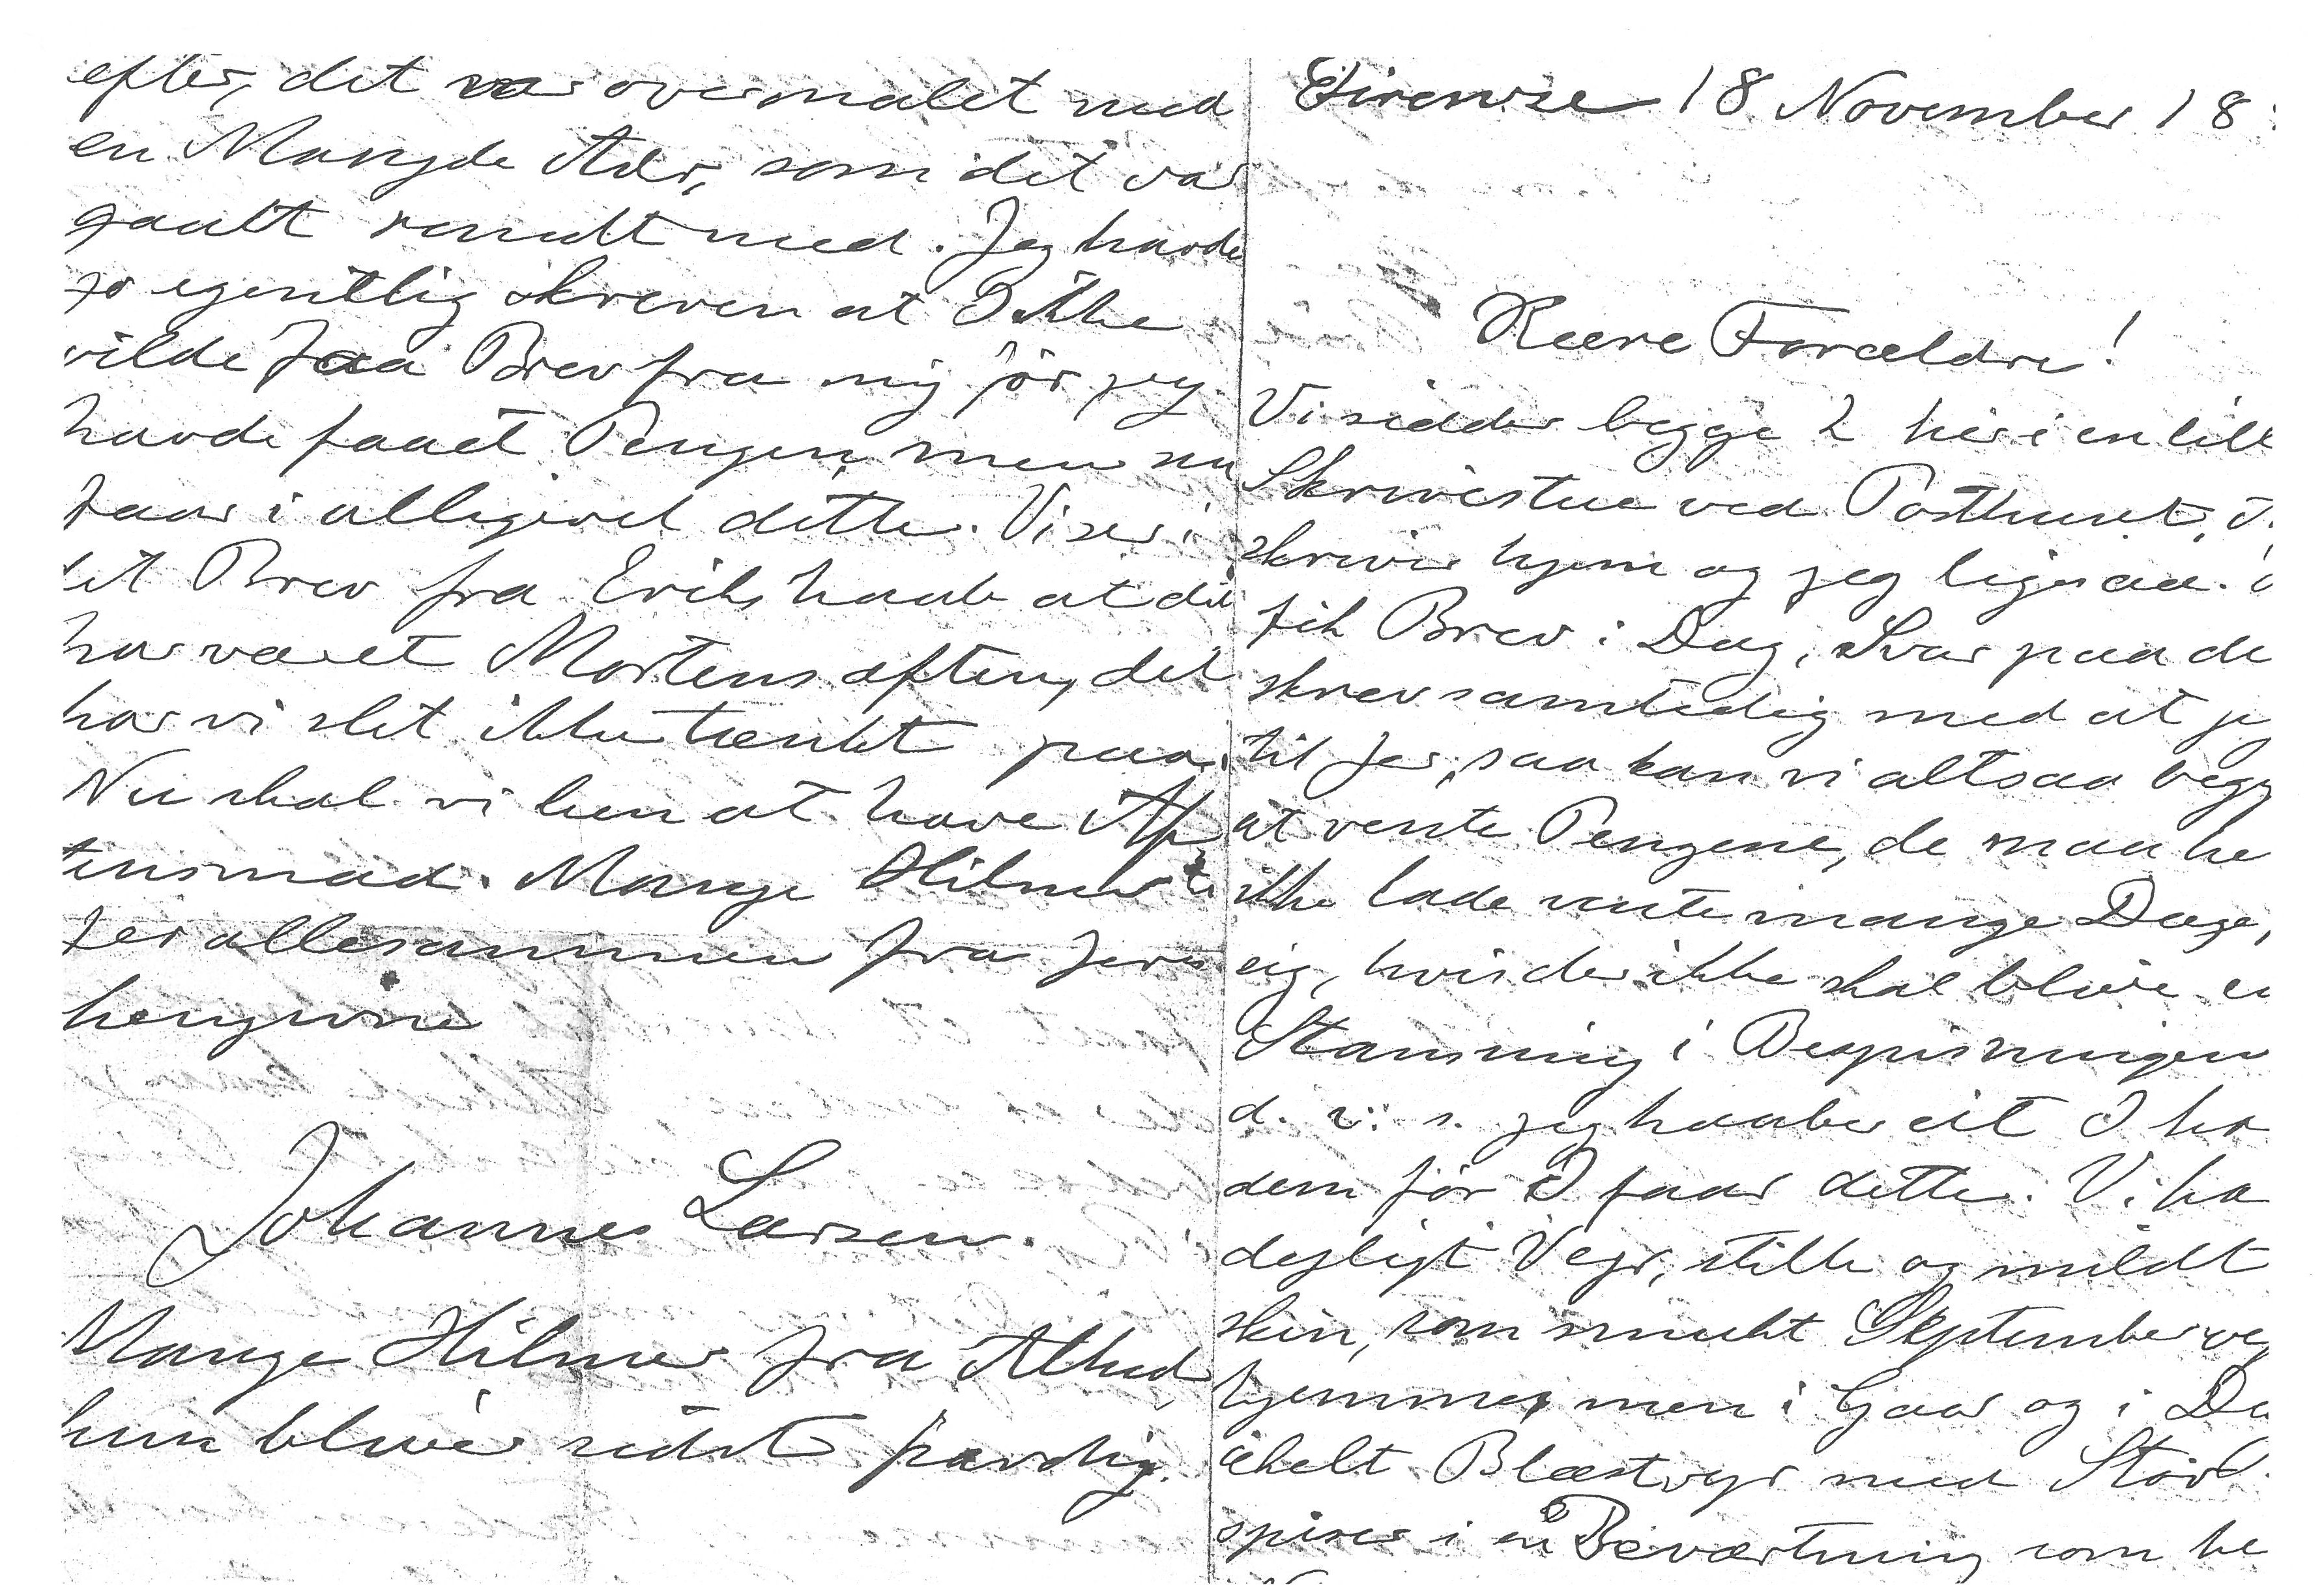 efter, det var overmalet med
en Mangde Aar, som det var
gaalt rendt med. Jeg havde
jo egentlig skreven at I ikke
vilde faa Brev fra mig før jeg
havde faaet Pengene, men nu
faar i alligevel dette. Vi ser i
et Brev fra Erikshaab at det
har været Mortensaften, det
har vi slet ikke tænkt paa.
Nu skal vi hen at have Af-
tensmad. Mange Hilsner til
Jer allesammen fra Jeres
hengivne
Johannes Larsen.
Mange Hilsner fra Alhed
hun bliver sidst færdig.
Firenze 18 November 18
Kære Forældre!
Vi sidder begge 2 her i en lill
Skrivestue ved Posthuset,
skriver hjem og jeg ligesaa.
fik Brev i Dag, Svar paa de
skrev samtidig med at je
til Jer, saa kan vi altsaa begy
at vente Pengene, de maa he
ikke lade vente mange Dage,
sig, hvis der ikke skal blive e
Standsning i Bespisningen
d. v. s. jeg haaber at I ha
dem før I faar dette. Vi ha
dejligt Vejr, stille og mildt
skin, som smukt September ve
hjemme, men i Gaar og i Da
ehelt Blæstvejr med Støv.
spiser i en Beværtning som he